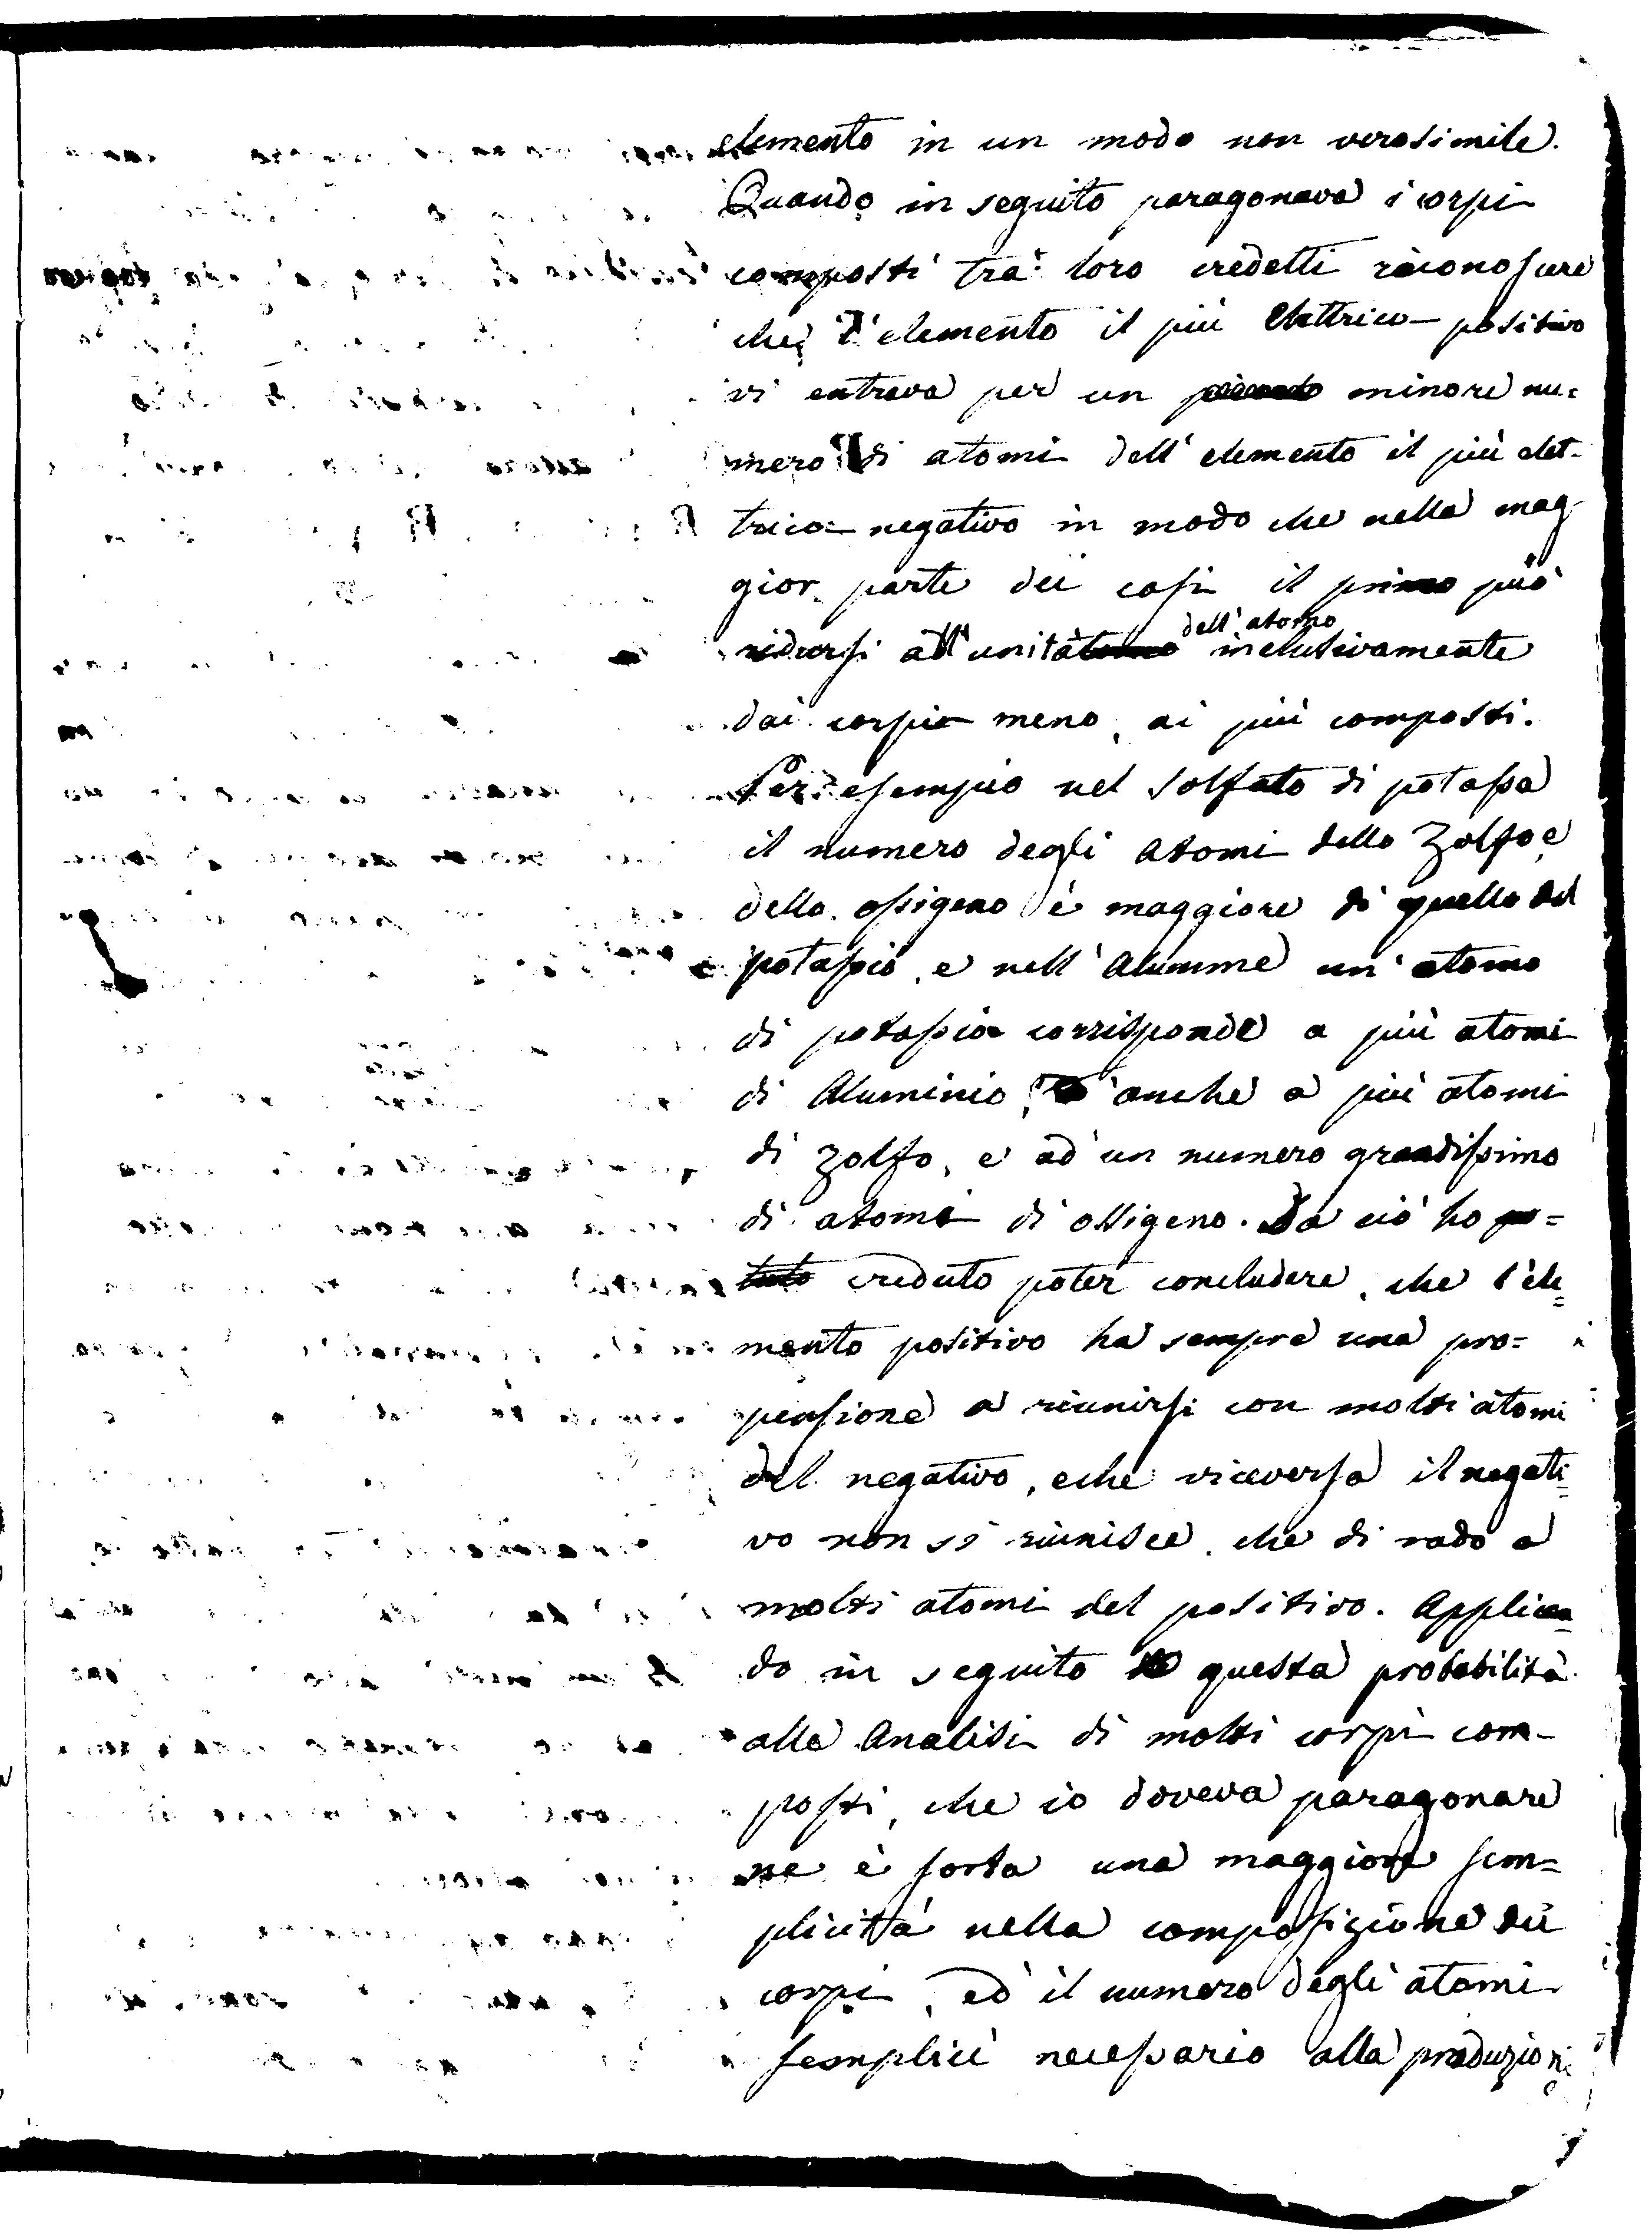 elemento in un modo non verosimile.
Quando in seguito paragonava i corpi
composti tra loro credetti riconoscere
che l'elemento il più Elettrico-positivo
vi entrava per un minore nu=
mero di atomi dell'elemento il più elet-
trico-negativo in modo che nella mag-
gior parte dei casi il primo può
dell'atomo
ridursi all'unità inclusivamente
dai corpi meno, ai più composti.
Per esempio nel Solfato di potassa
il numero degli Atomi dello Zolfo e
dello ossigeno è maggiore di quello del
potassio, e nell'Alumme un'atomo
di potassio corrisponde a più atomi
di Aluminio, anche a più atomi
di Zolfo, e ad un numero grandissimo
di atomi di ossigeno. Da ciò ho po=
tuto creduto poter concludere, che l'ele=
mento positivo ha sempre una pro=
pensione a riunirsi con molti atomi
del negativo, e che viceversa il negati=
vo non si riunisce, che di rado a
molti atomi del positivo. Applican=
do in seguito questa probabilità
alla Analisi di molti corpi com-
posti, che io doveva paragonare
ne è sorta una maggiore sem=
plicità nella composizione dei
corpi, ed il numero degli atomi
semplici necessario alla produzione